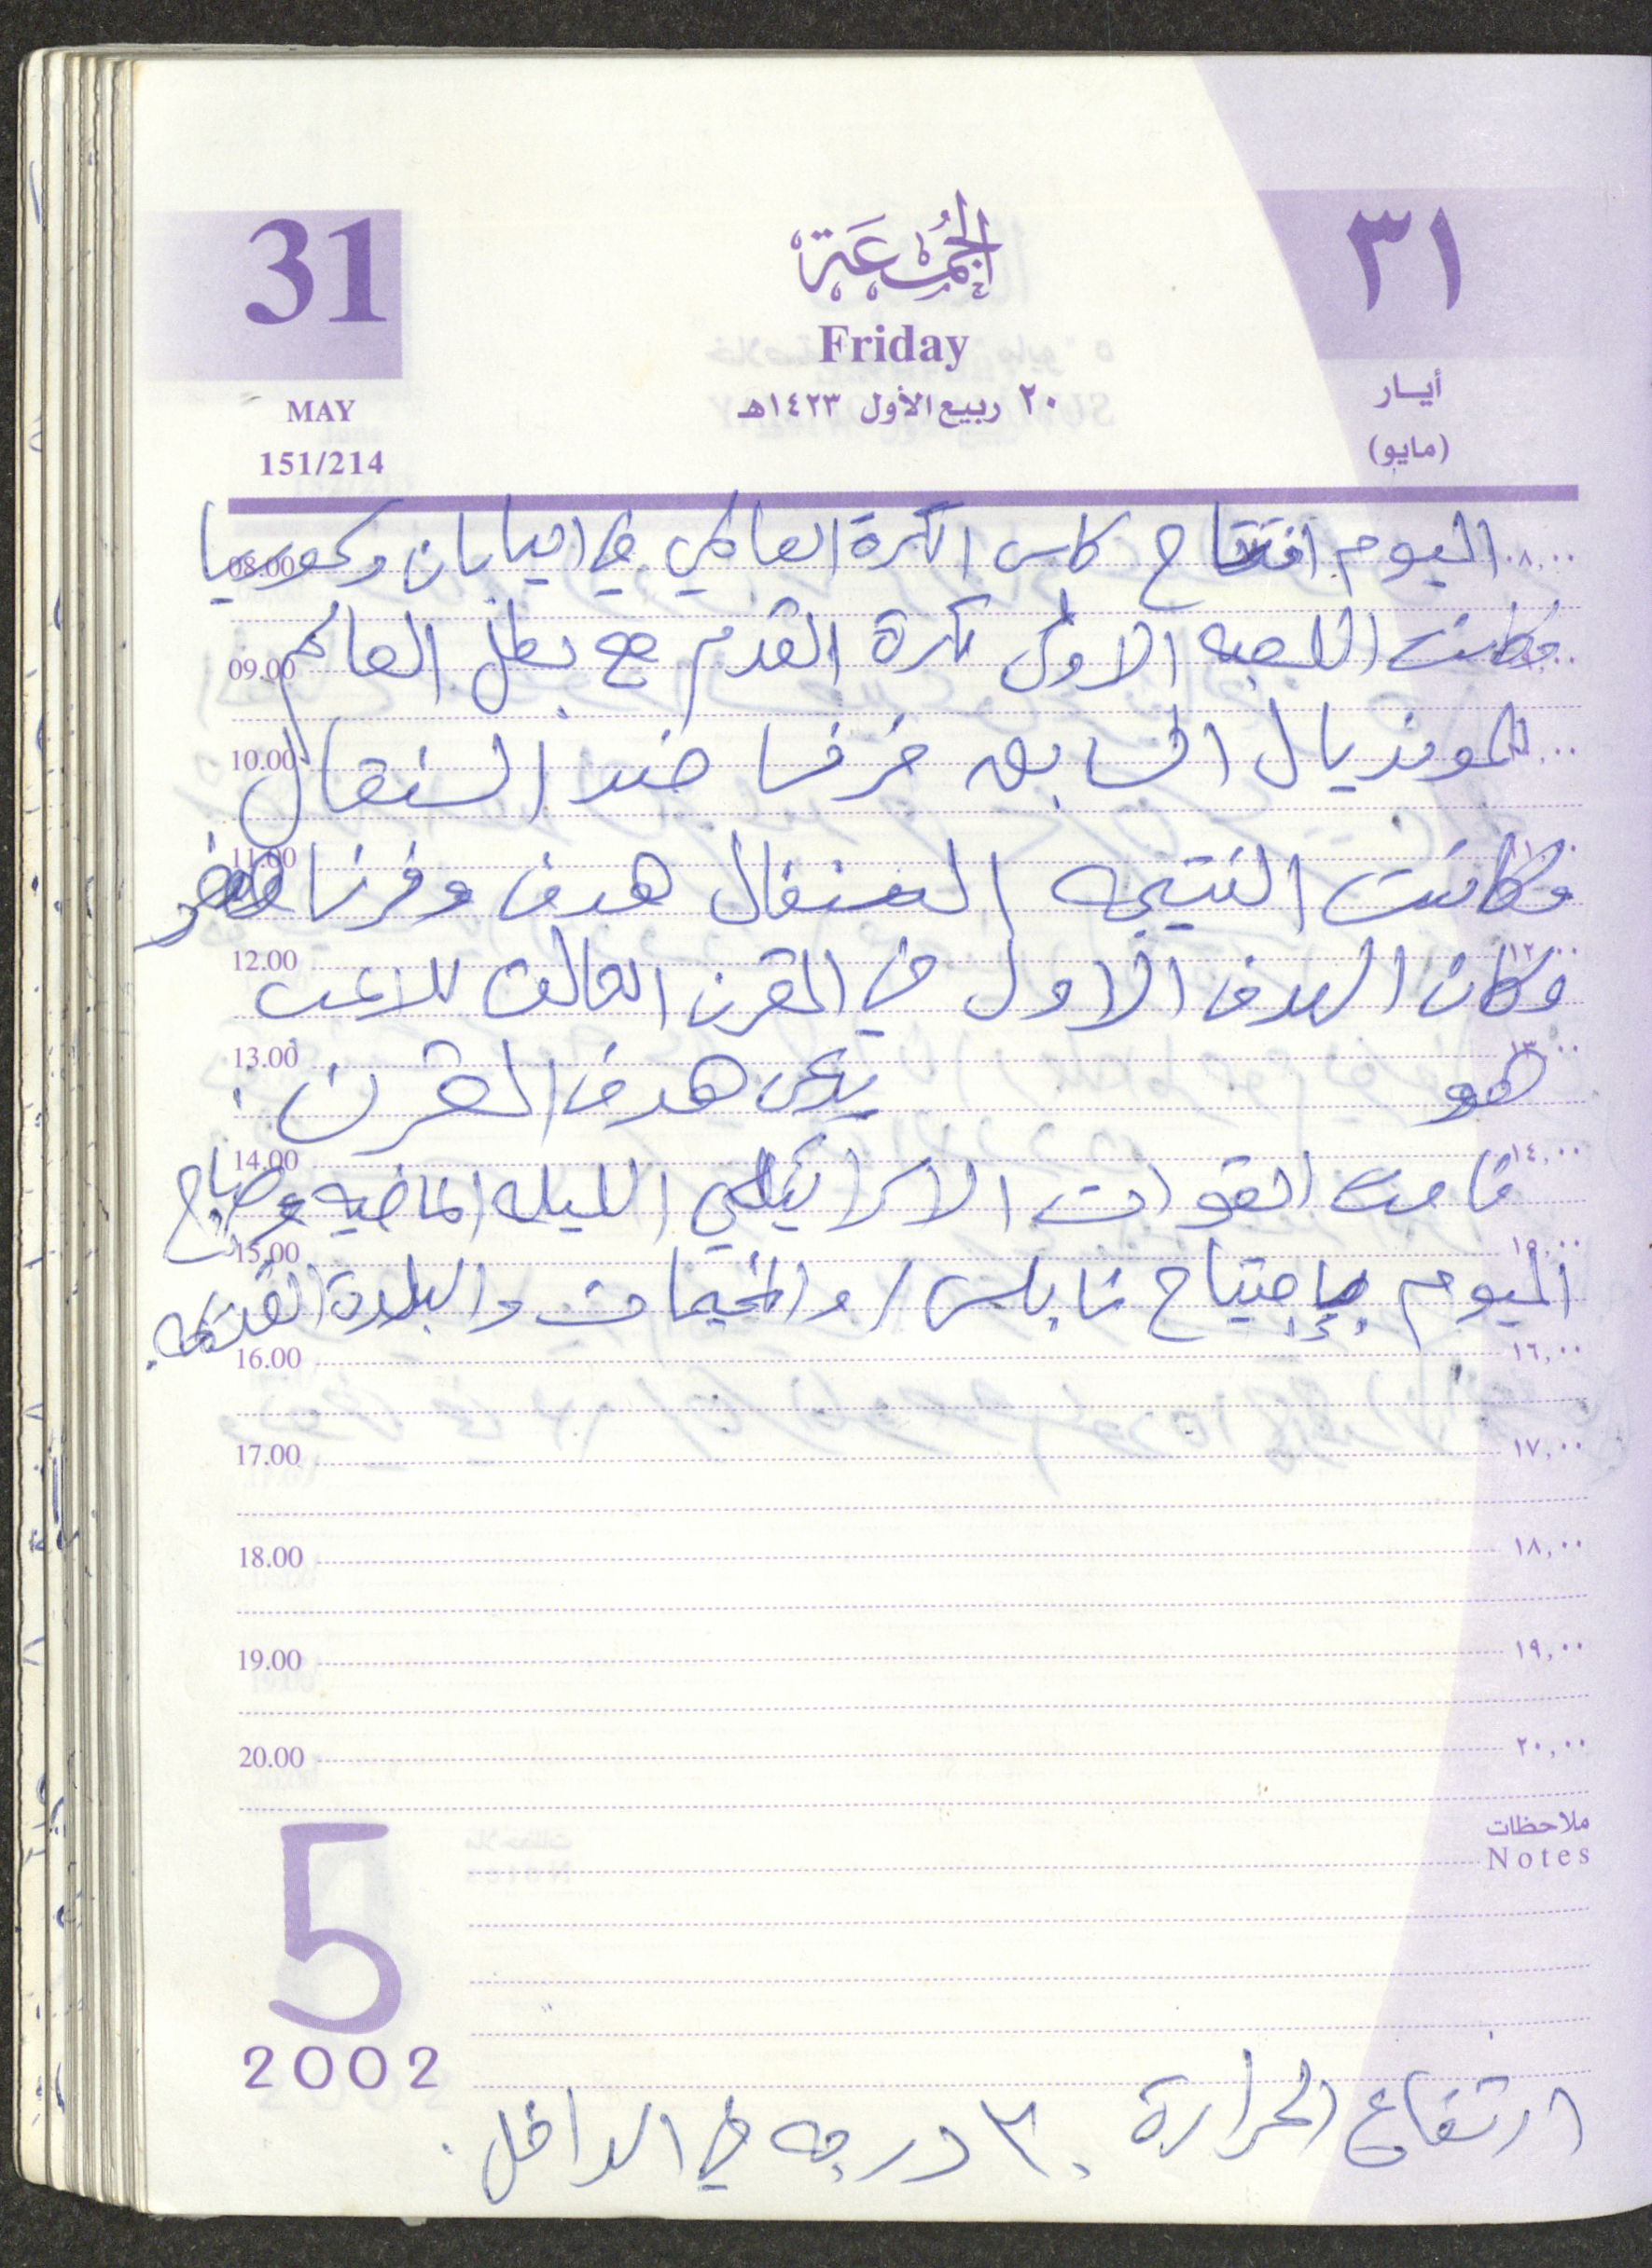 31
الجُمُعَة
٣١
Friday
أيار
٢٠ ربيع الأول ١٤٢٣هـ
MAY
(مايو)
151/214
08.00 اليوم افتتاح كاس الكرة العالمي في اليابان وكوريا ٠٨,٠٠
09.00 وكانت اللعبه الاولى لكرة القدم مع بطل العالم
10.00 للمونديال السابق فرنسا ضد السنغال
11.00 وكانت النتيجه السنغال هدف وفرنسا صفر
12.00 وكان الهدف الاول في القرن الحالي للاعب ١٢,٠٠
13.00 هو يدعى هدف القرن . ١٣,٠٠
14.00 قامت القوات الاسرائيلي الليله الماضيه وصباح ١٤,٠٠
15.00 اليوم بإجتياح نابلس / والمخيمات والبلدة القديمه . ١٥,٠٠
16.00 ١٦,٠٠
17.00 ١٧,٠٠
18.00 ١٨,٠٠
19.00 ١٩,٠٠
20.00 ٢٠,٠٠
ملاحظات
Notes
5
2002
ارتفاع الحرارة ٣٠ درجه في الداخل .